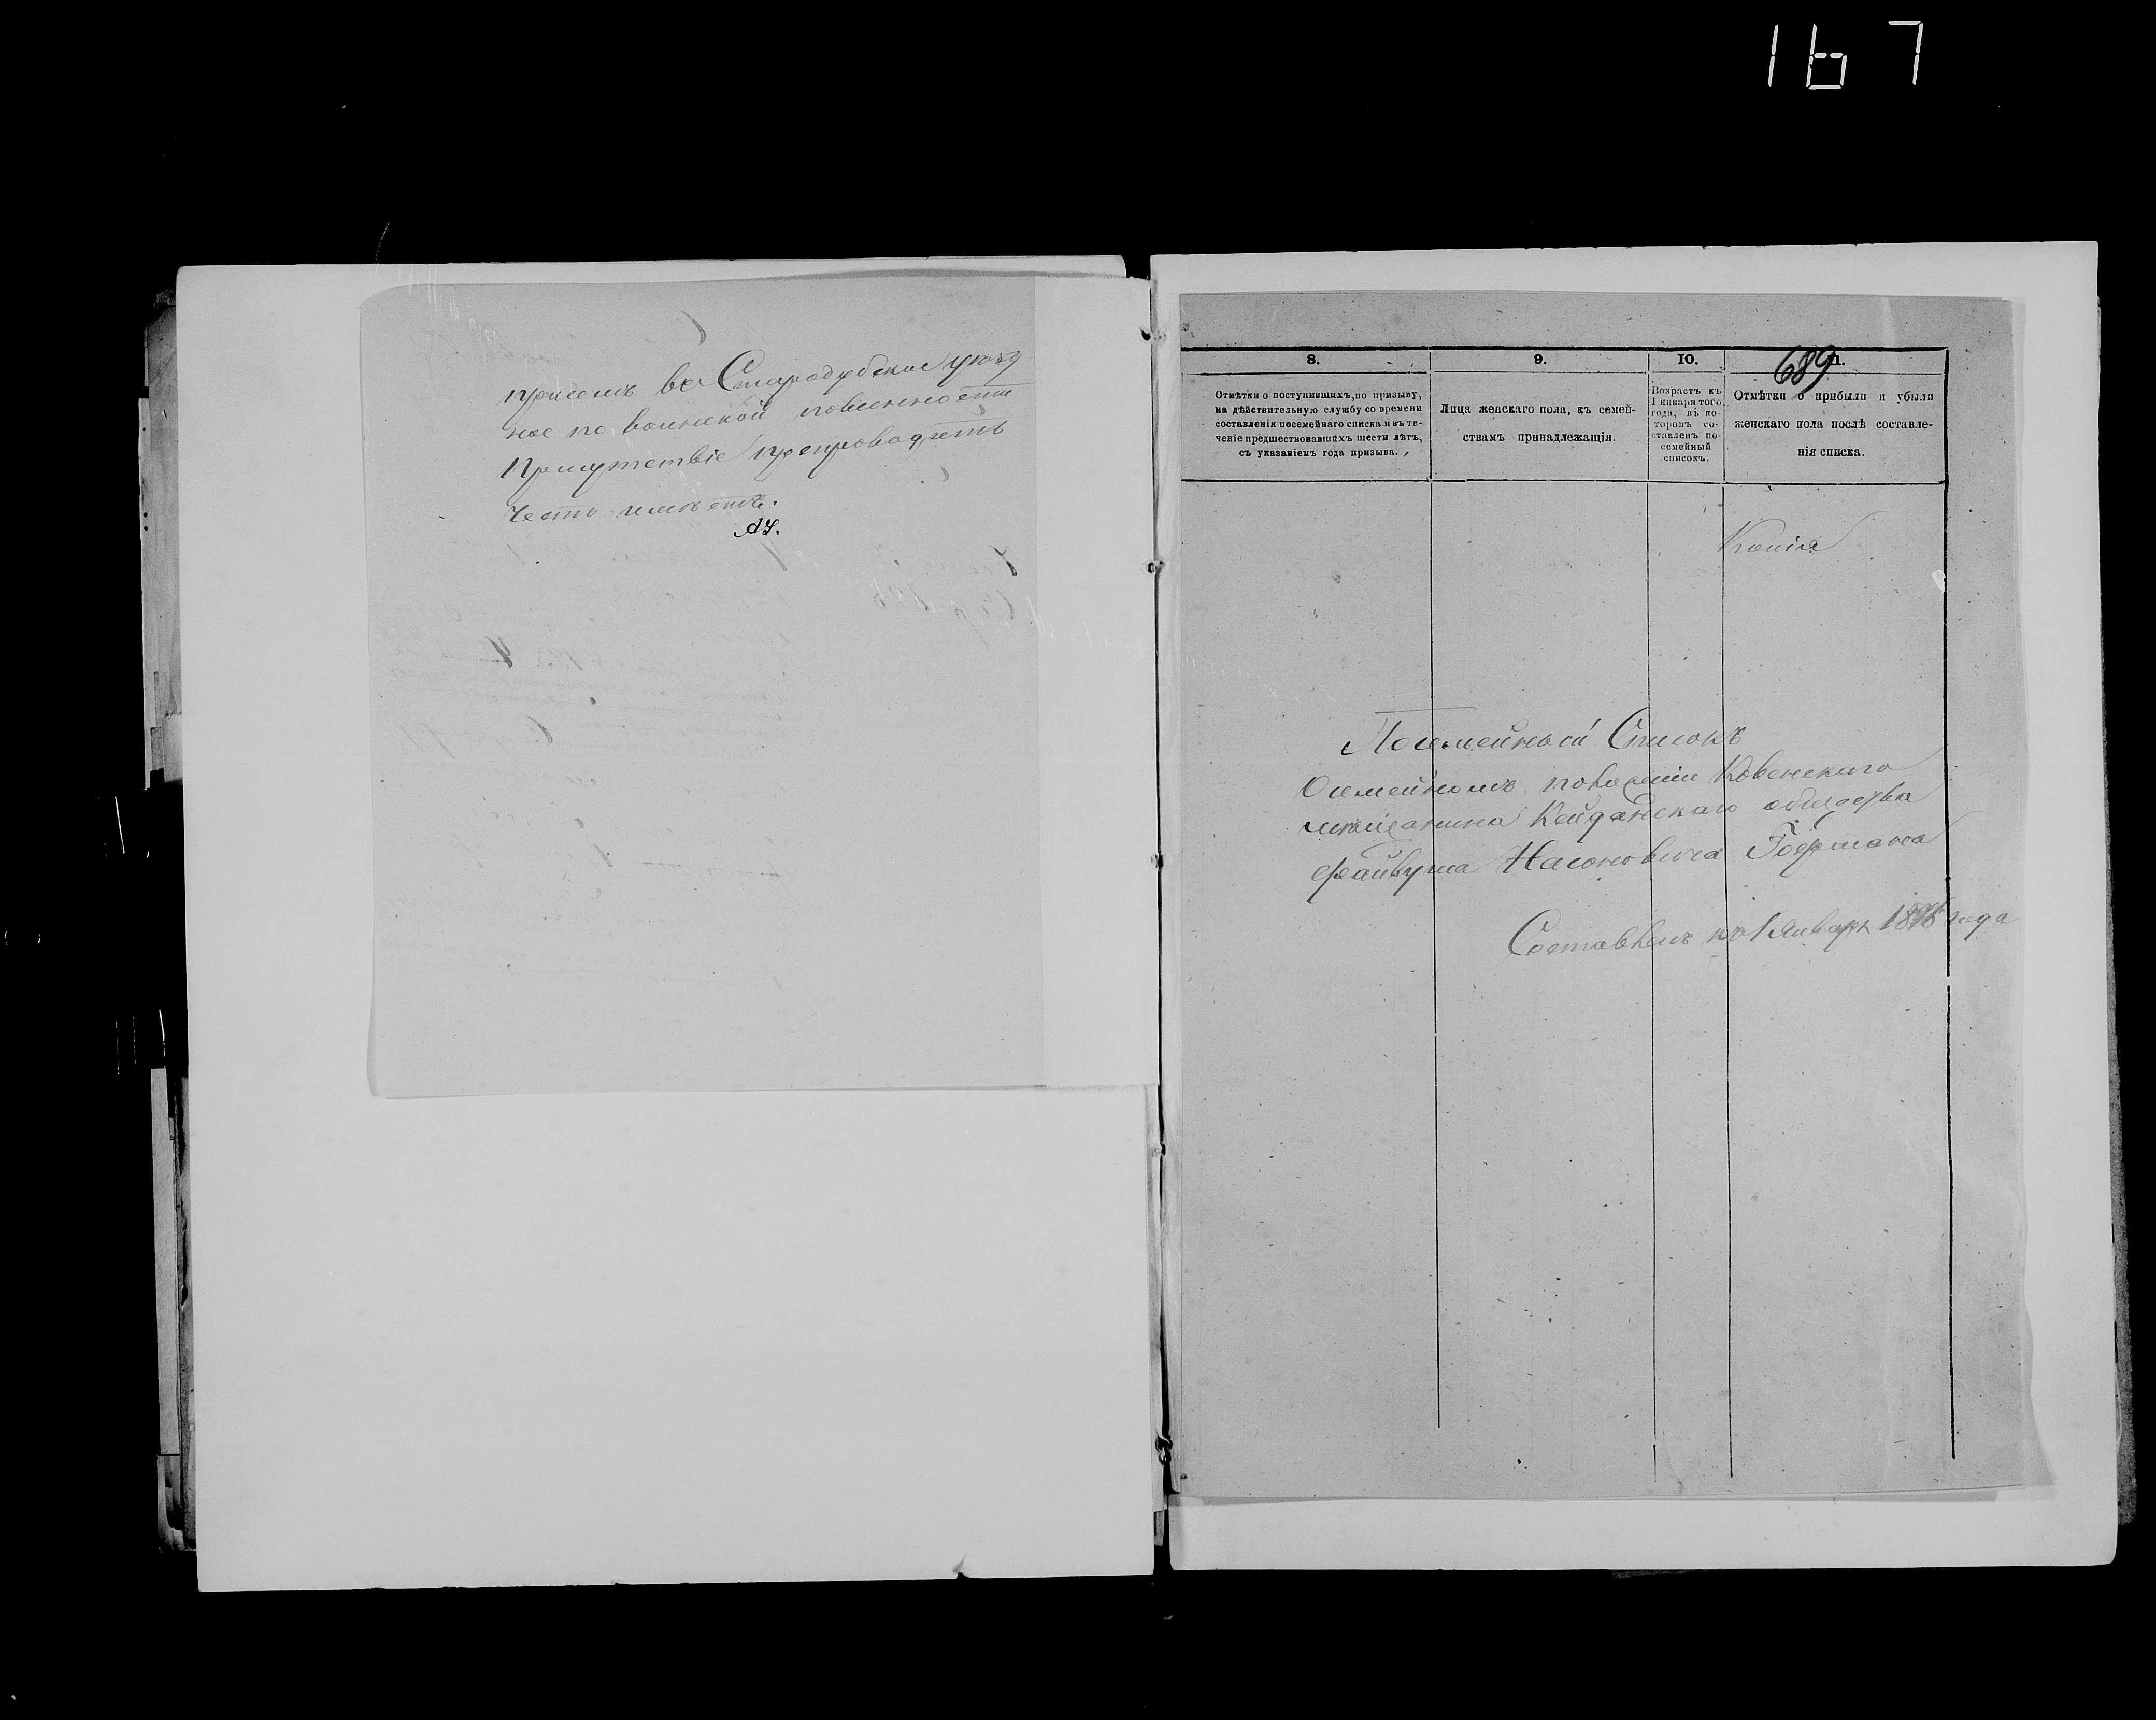 167
присемъ въ Стародубское уѣзд
ное по воинской повинности
Присутствіе препроводить
честь имѣетъ.
689
8.
9.
10.
11.
Отмѣтки о поступившихъ, по призыву,
на дѣйствительную службу со времени
составленія посемейнаго списка и въ те-
ченіе предшествовавшихъ шести лѣтъ,
съ указаніемъ года призыва.
Лица женскаго пола, къ семей-
ствамъ принадлежащія.
Возрастъ къ
1 января того
года, въ ко-
торомъ со-
ставленъ по-
семейный
списокъ.
Отмѣтки о прибыли и убыли
женскаго пола послѣ составле-
нія списка.
Копія
Посемейный Списокъ
О семейномъ положеніи Ковенскаго
мѣщанина Кейданскаго общества
Файвуша Насоновича
Составленъ къ 1 Января года